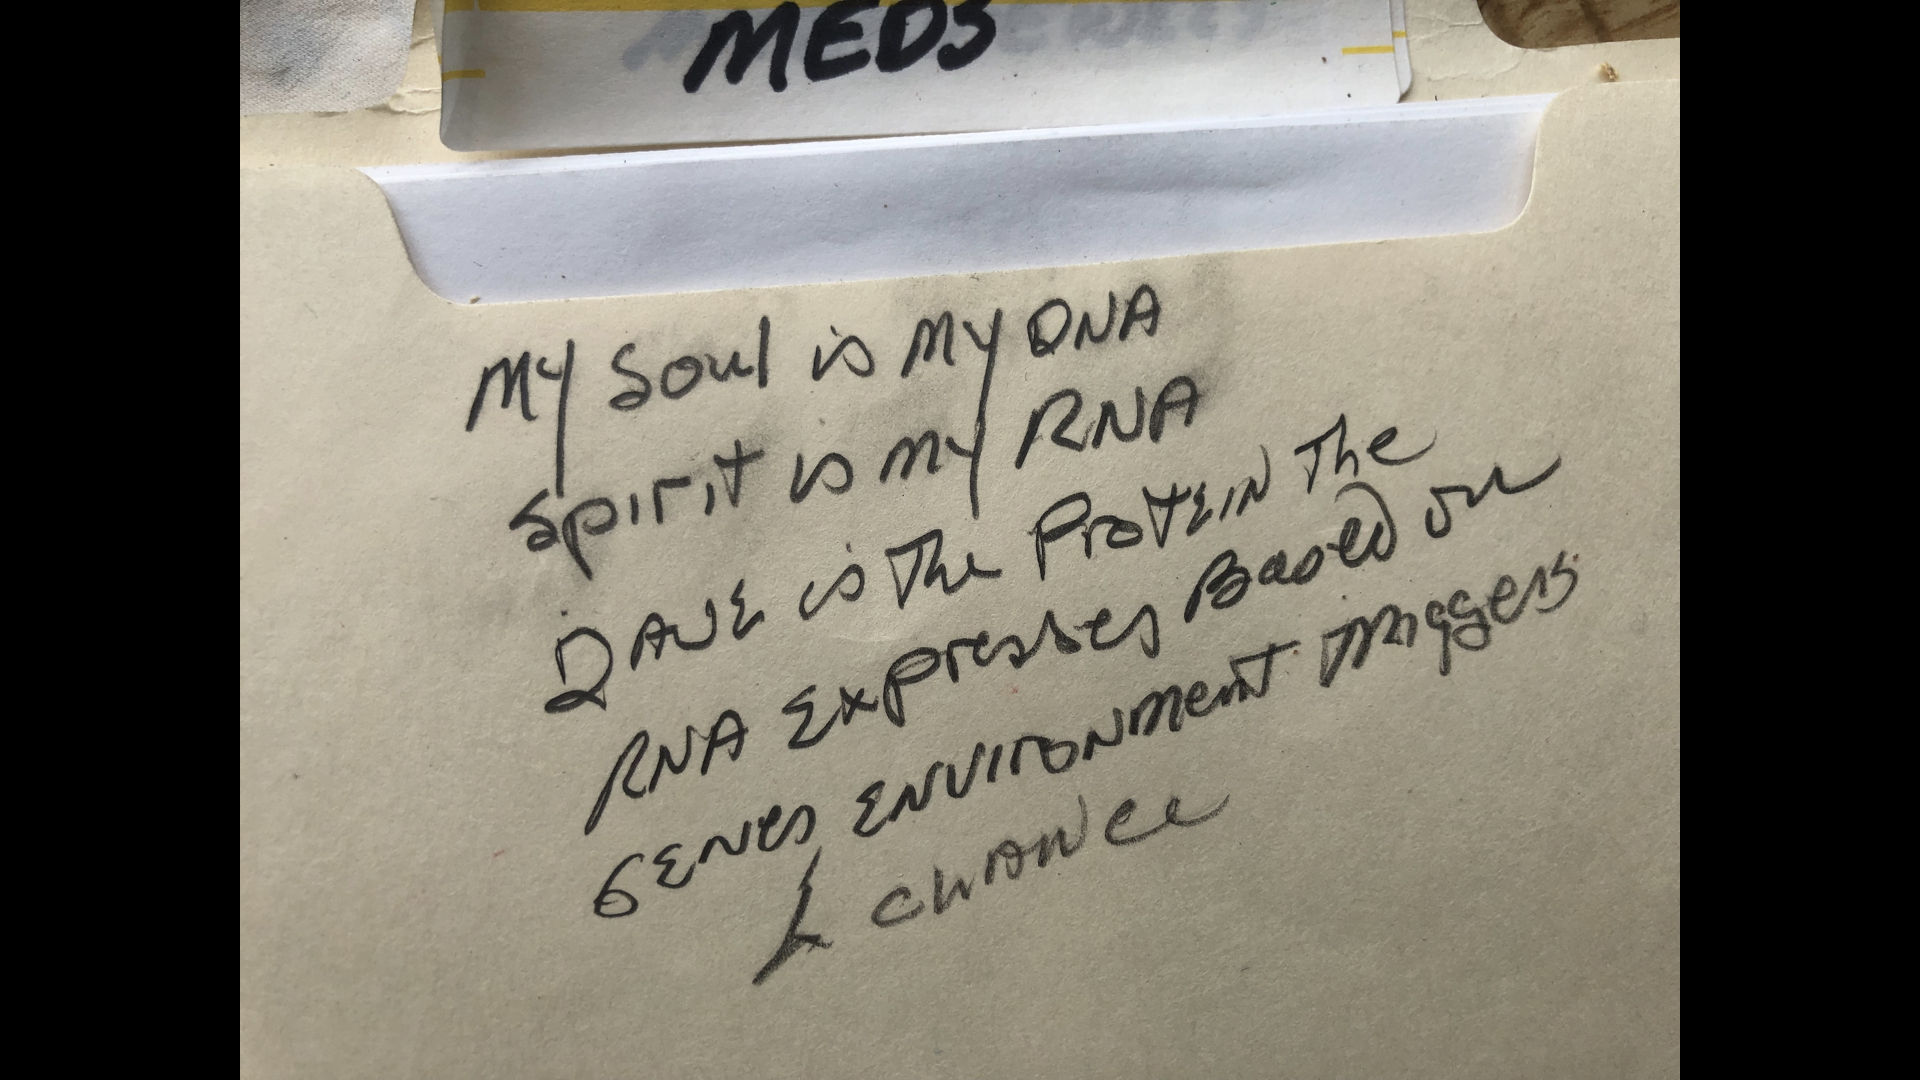 MEDS
MY Soul is MY DNA
Spirit is MY RNA
DAVE is The Protein The
RNA Expresses Based on
GENES ENVIRONMENT Triggers
& CHANCE